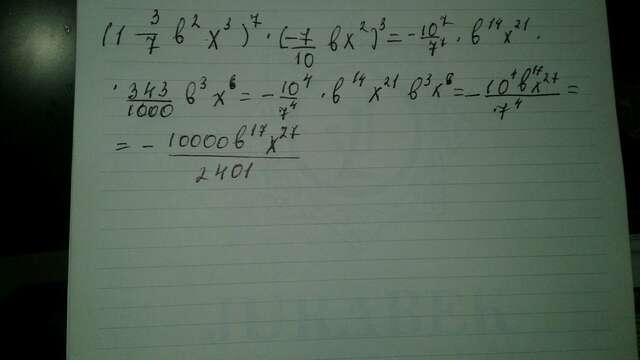 (1 3/7 в² x³)⁷ · (-7/10 вx²)³ = -10⁷/7⁷ · в¹⁴x²¹ ·
· 343/1000 в³ x⁶ = -10⁴/7⁴ · в¹⁴ x²¹ в³x⁶ = -10⁴в¹⁷x²⁷/7⁴ =
= - 10000в¹⁷x²⁷/2401